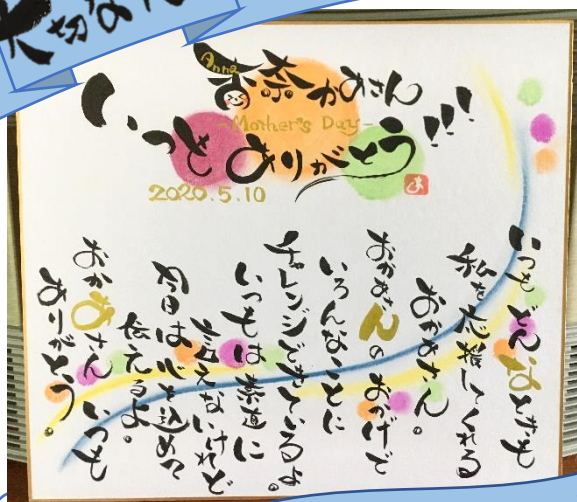 大切な
Anna
杏奈かあさん
-Mother's Day-
いつもありがとう!!!
2020.5.10
いつもどんなときも
私を応援してくれる
おかあさん。
おかあさんのおかげで
いろんなことに
チャレンジできているよ。
いつもは素直に
言えないけれど
今日は心を込めて
伝えるよ。
おかあさんいつも
ありがとう。